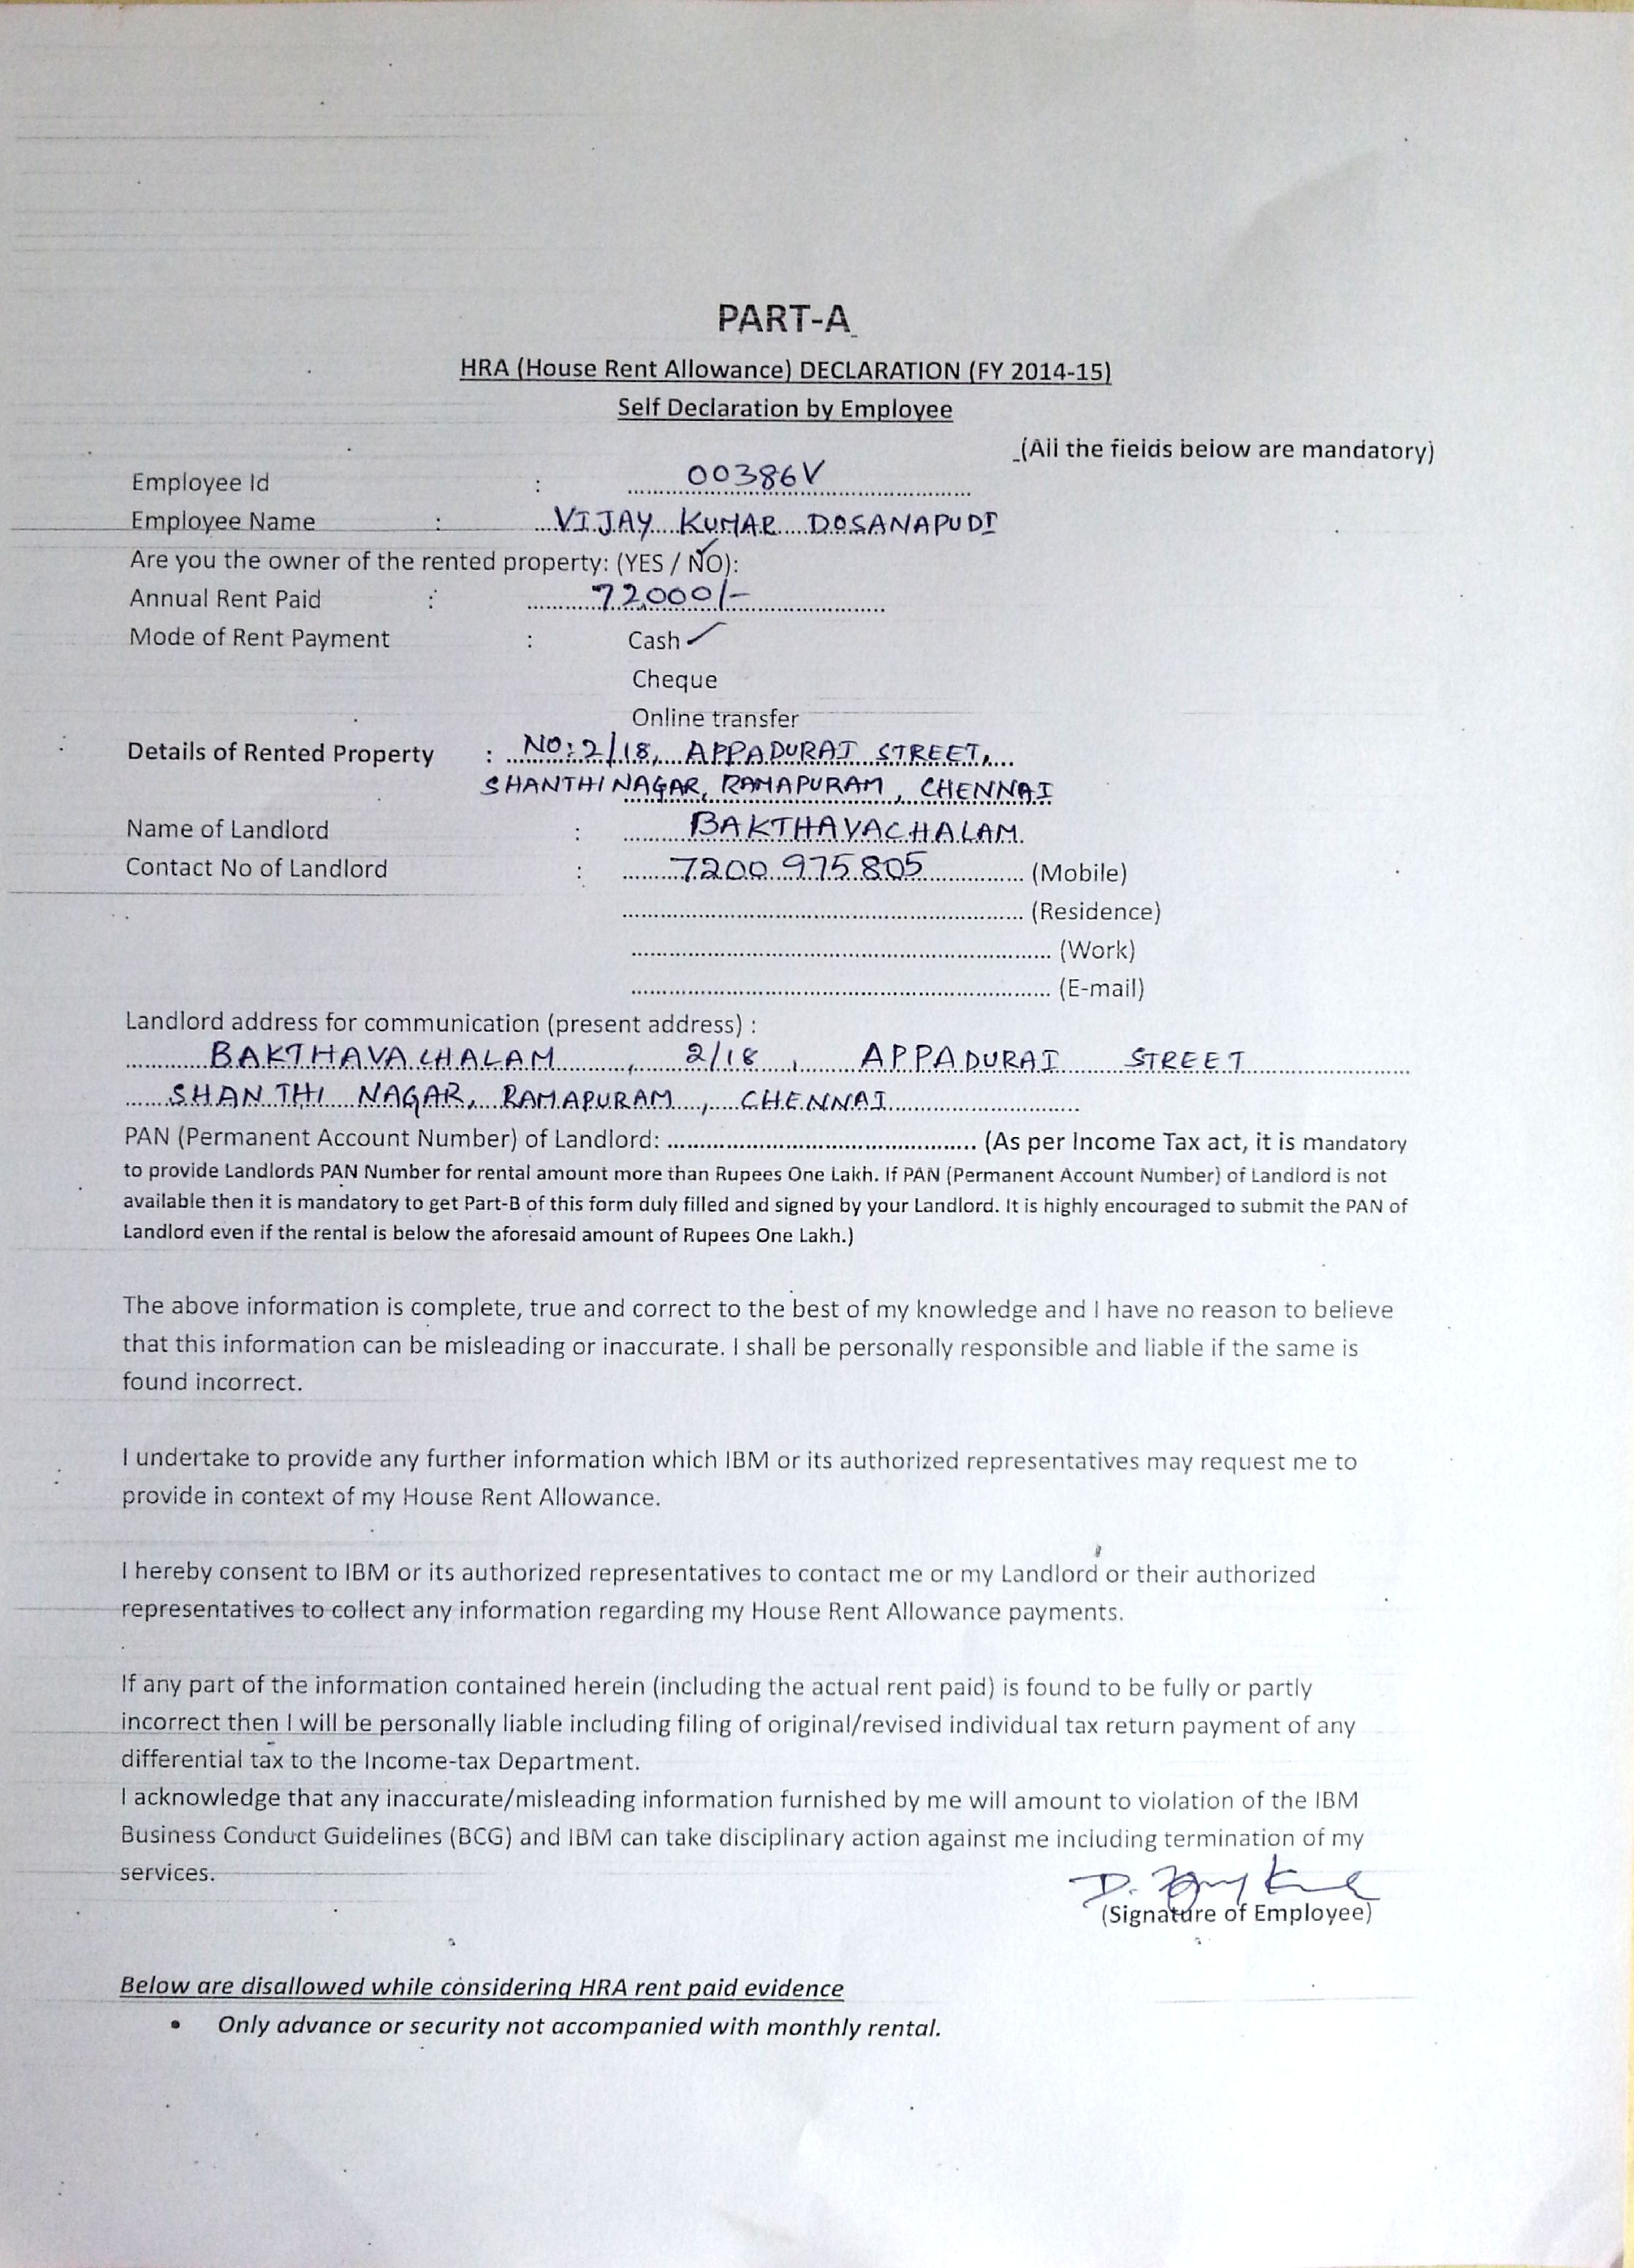 PART-A
HRA (House Rent Allowance) DECLARATION (FY 2014-15)
Self Declaration by Employee
(All the fields below are mandatory)
Employee Id : 00386V
Employee Name : VIJAY KUMAR DOSANAPUDI
Are you the owner of the rented property: (YES / NO):
Annual Rent Paid : 72,000/-
Mode of Rent Payment : Cash ✓
Cheque
Online transfer
Details of Rented Property : NO: 2/18, APPADURAI STREET,
SHANTHI NAGAR, RAMAPURAM, CHENNAI
Name of Landlord : BAKTHAVACHALAM.
Contact No of Landlord : 7200 975 805 (Mobile)
(Residence)
(Work)
(E-mail)
Landlord address for communication (present address) :
BAKTHAVACHALAM, 2/18, APPADURAI STREET
SHANTHI NAGAR, RAMAPURAM, CHENNAI
PAN (Permanent Account Number) of Landlord: ............ (As per Income Tax act, it is mandatory
to provide Landlords PAN Number for rental amount more than Rupees One Lakh. If PAN (Permanent Account Number) of Landlord is not
available then it is mandatory to get Part-B of this form duly filled and signed by your Landlord. It is highly encouraged to submit the PAN of
Landlord even if the rental is below the aforesaid amount of Rupees One Lakh.)
The above information is complete, true and correct to the best of my knowledge and I have no reason to believe
that this information can be misleading or inaccurate. I shall be personally responsible and liable if the same is
found incorrect.
I undertake to provide any further information which IBM or its authorized representatives may request me to
provide in context of my House Rent Allowance.
I hereby consent to IBM or its authorized representatives to contact me or my Landlord or their authorized
representatives to collect any information regarding my House Rent Allowance payments.
If any part of the information contained herein (including the actual rent paid) is found to be fully or partly
incorrect then I will be personally liable including filing of original/revised individual tax return payment of any
differential tax to the Income-tax Department.
I acknowledge that any inaccurate/misleading information furnished by me will amount to violation of the IBM
Business Conduct Guidelines (BCG) and IBM can take disciplinary action against me including termination of my
services.
(Signature of Employee)
Below are disallowed while considering HRA rent paid evidence
• Only advance or security not accompanied with monthly rental.